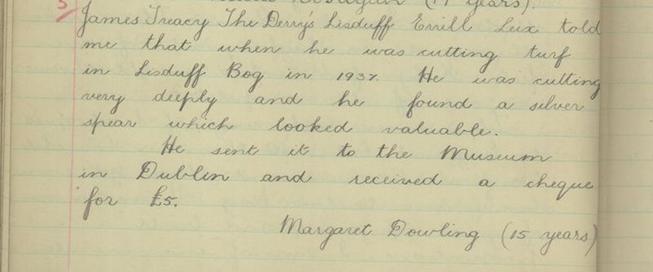 5/ (14 years).
James Treacy The Derrys Lisduff Errill Leix told
me that when he was cutting turf
in Lisduff Bog in 1937. He was cutting
very deeply and he found a silver
spear which looked valuable.
He sent it to the Museum
in Dublin and received a cheque
for £5.
Margaret Dowling (15 years)